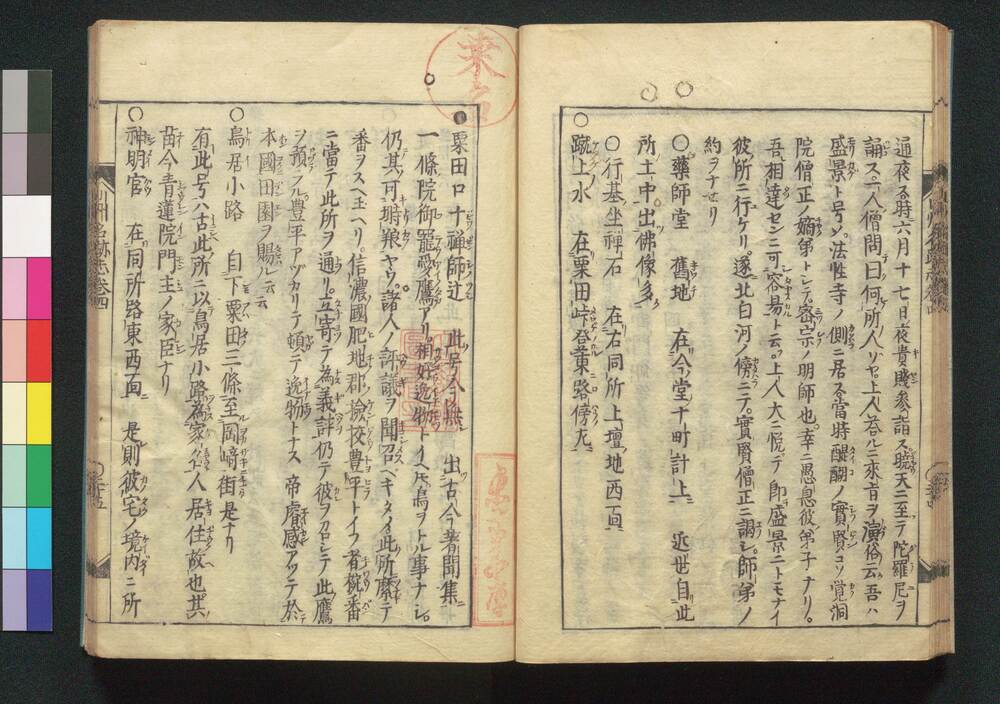 通夜ス時六月十七日夜貴賤參詣ス曉天ニ至テ陀羅尼ヲ
誦ス一人僧問曰何所人ソヤ上人答ルニ來音ヲ演俗云吾ハ
盛景ト号ソ法性寺ノ側ニ居ス當時醍醐ノ實賢コソ覚洞
院僧正ノ嫡弟トシテ密宗ノ明師也幸ニ愚息彼弟子ナリ
吾相達センニ可容易ト云上人大ニ悦テ即盛景ニトモナイ
彼所ニ行ケリ遂ニ北白河ノ傍ニテ實賢僧正ニ謁シ師弟ノ
約ヲナセリ
○藥師堂 舊地 在今堂十町計上ニ 近世自此
所土中出佛像多
○行基坐禪石 在右同所上壇地西面
○蹴上水 在粟田峠登東路傍尤
●粟田口十禪師辻 此号今無 出古今著聞集ニ
一條院御寵愛ノ鷹アリ相好逸物トイヘ𪜈鳥ヲトル事ナシ
仍其可塒狼ヤウ諸人ノ評議ヲ聞召ヘキタメ此所縻テ
番ヲスヘ玉ヘリ信濃國肥地郡撿挍豊平トイフ者椀番
ニ當テ此所ヲ通リ立寄テ為義評仍テ彼ヲ召シテ此鷹
ヲ預フル豊平アツカリテ頓テ逸物トナス 帝睿感アツテ於
本國田園ヲ賜ルト云云
○鳥居小路 自下粟田三條至岡﨑街是ナリ
有此号ハ古此所ニ以鳥居小路為家名人居住故也其
苗今青蓮院門主ノ家臣ナリ
○神明宮 在同所路東西面ニ 是則彼宅ノ境内ニ所
山州名跡志巻四